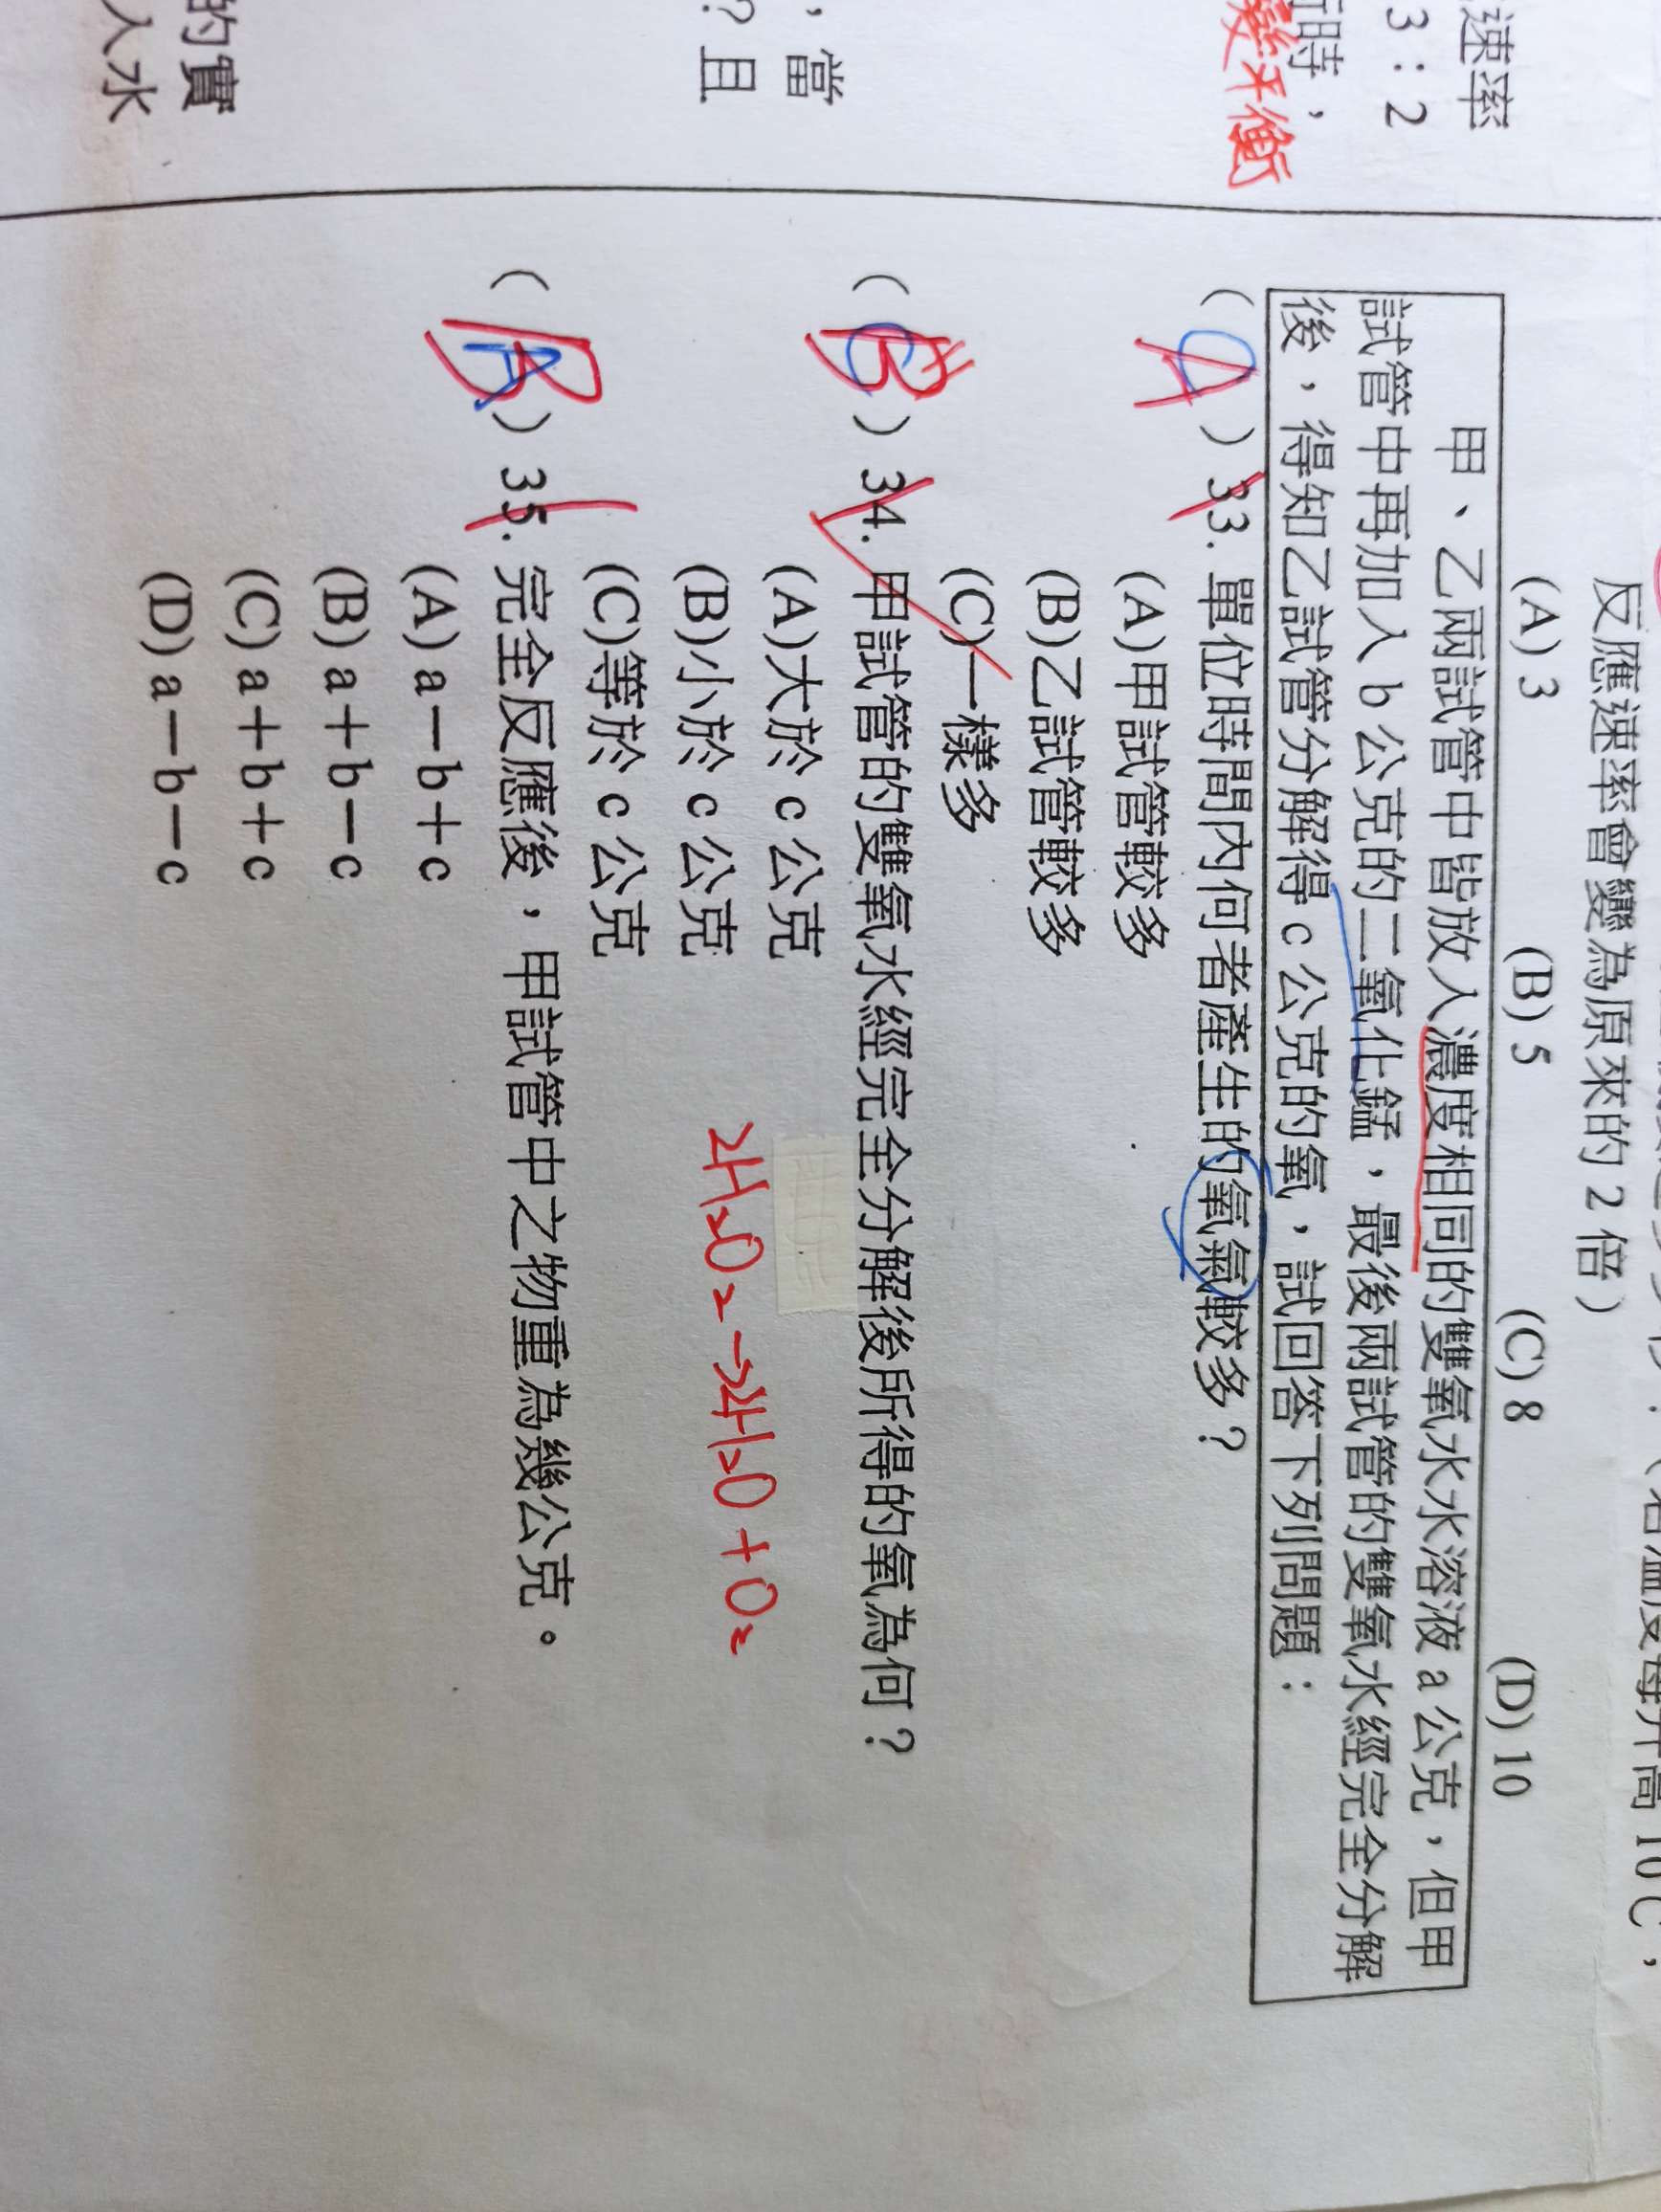 速率
3：2
時，
變平衡
，當
？且
的實
入水
反應速率會變為原來的 2 倍）
(A) 3 (B) 5 (C) 8 (D) 10
甲、乙兩試管中皆放入濃度相同的雙氧水水溶液 a 公克，但甲
試管中再加入 b 公克的二氧化錳，最後兩試管的雙氧水經完全分解
後，得知乙試管分解得 c 公克的氧，試回答下列問題：
( A ) 33. 單位時間內何者產生的氧氣較多？
(A)甲試管較多
(B)乙試管較多
(C)一樣多
( ) 34. 甲試管的雙氧水經完全分解後所得的氧為何？
(A)大於 c 公克
(B)小於 c 公克
(C)等於 c 公克
2H2O2→2H2O+O2
( B ) 35. 完全反應後，甲試管中之物重為幾公克。
(A) a－b＋c
(B) a＋b－c
(C) a＋b＋c
(D) a－b－c